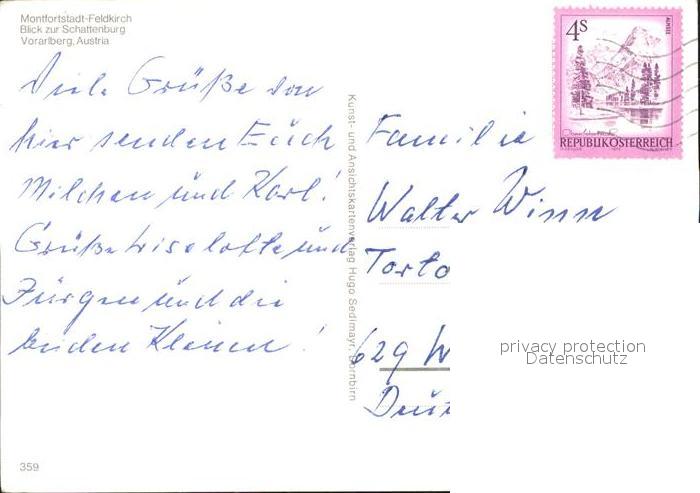 Montfortstadt-Feldkirch
Blick zur Schattenburg
Vorarlberg, Austria
Viele Grüße von
hier senden Euch
Milchen und Karl!
Grüße Liselotte und
Jürgen und die
beiden Kleinen!
359
Kunst- und Ansichtskartenverlag Hugo Sedlmayr, Dornbirn
4S
ALMSEE
REPUBLIK ÖSTERREICH
Familie
Walter Winn
629 W
privacy protection
Datenschutz